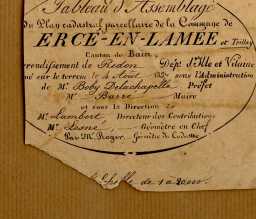 Tableau d'Assemblage
du Plan cadastral parcellaire de la Commune de
ERCÉ-EN-LAMÉE et Teillay
Canton de Bain
arrondissement de Redon Dépt d'Ille et Vilaine
sur le terrein le 4 Août sous l'Administration
de Mr. Boby Delachapelle Préfet
Mr. Barré Maire
et sous la Direction de
Mr. Lambert Directeur des Contributions
Mr. Lesné Géomètre en Chef
Par Mr. Géomètre du Cadastre
de 1 à 20000